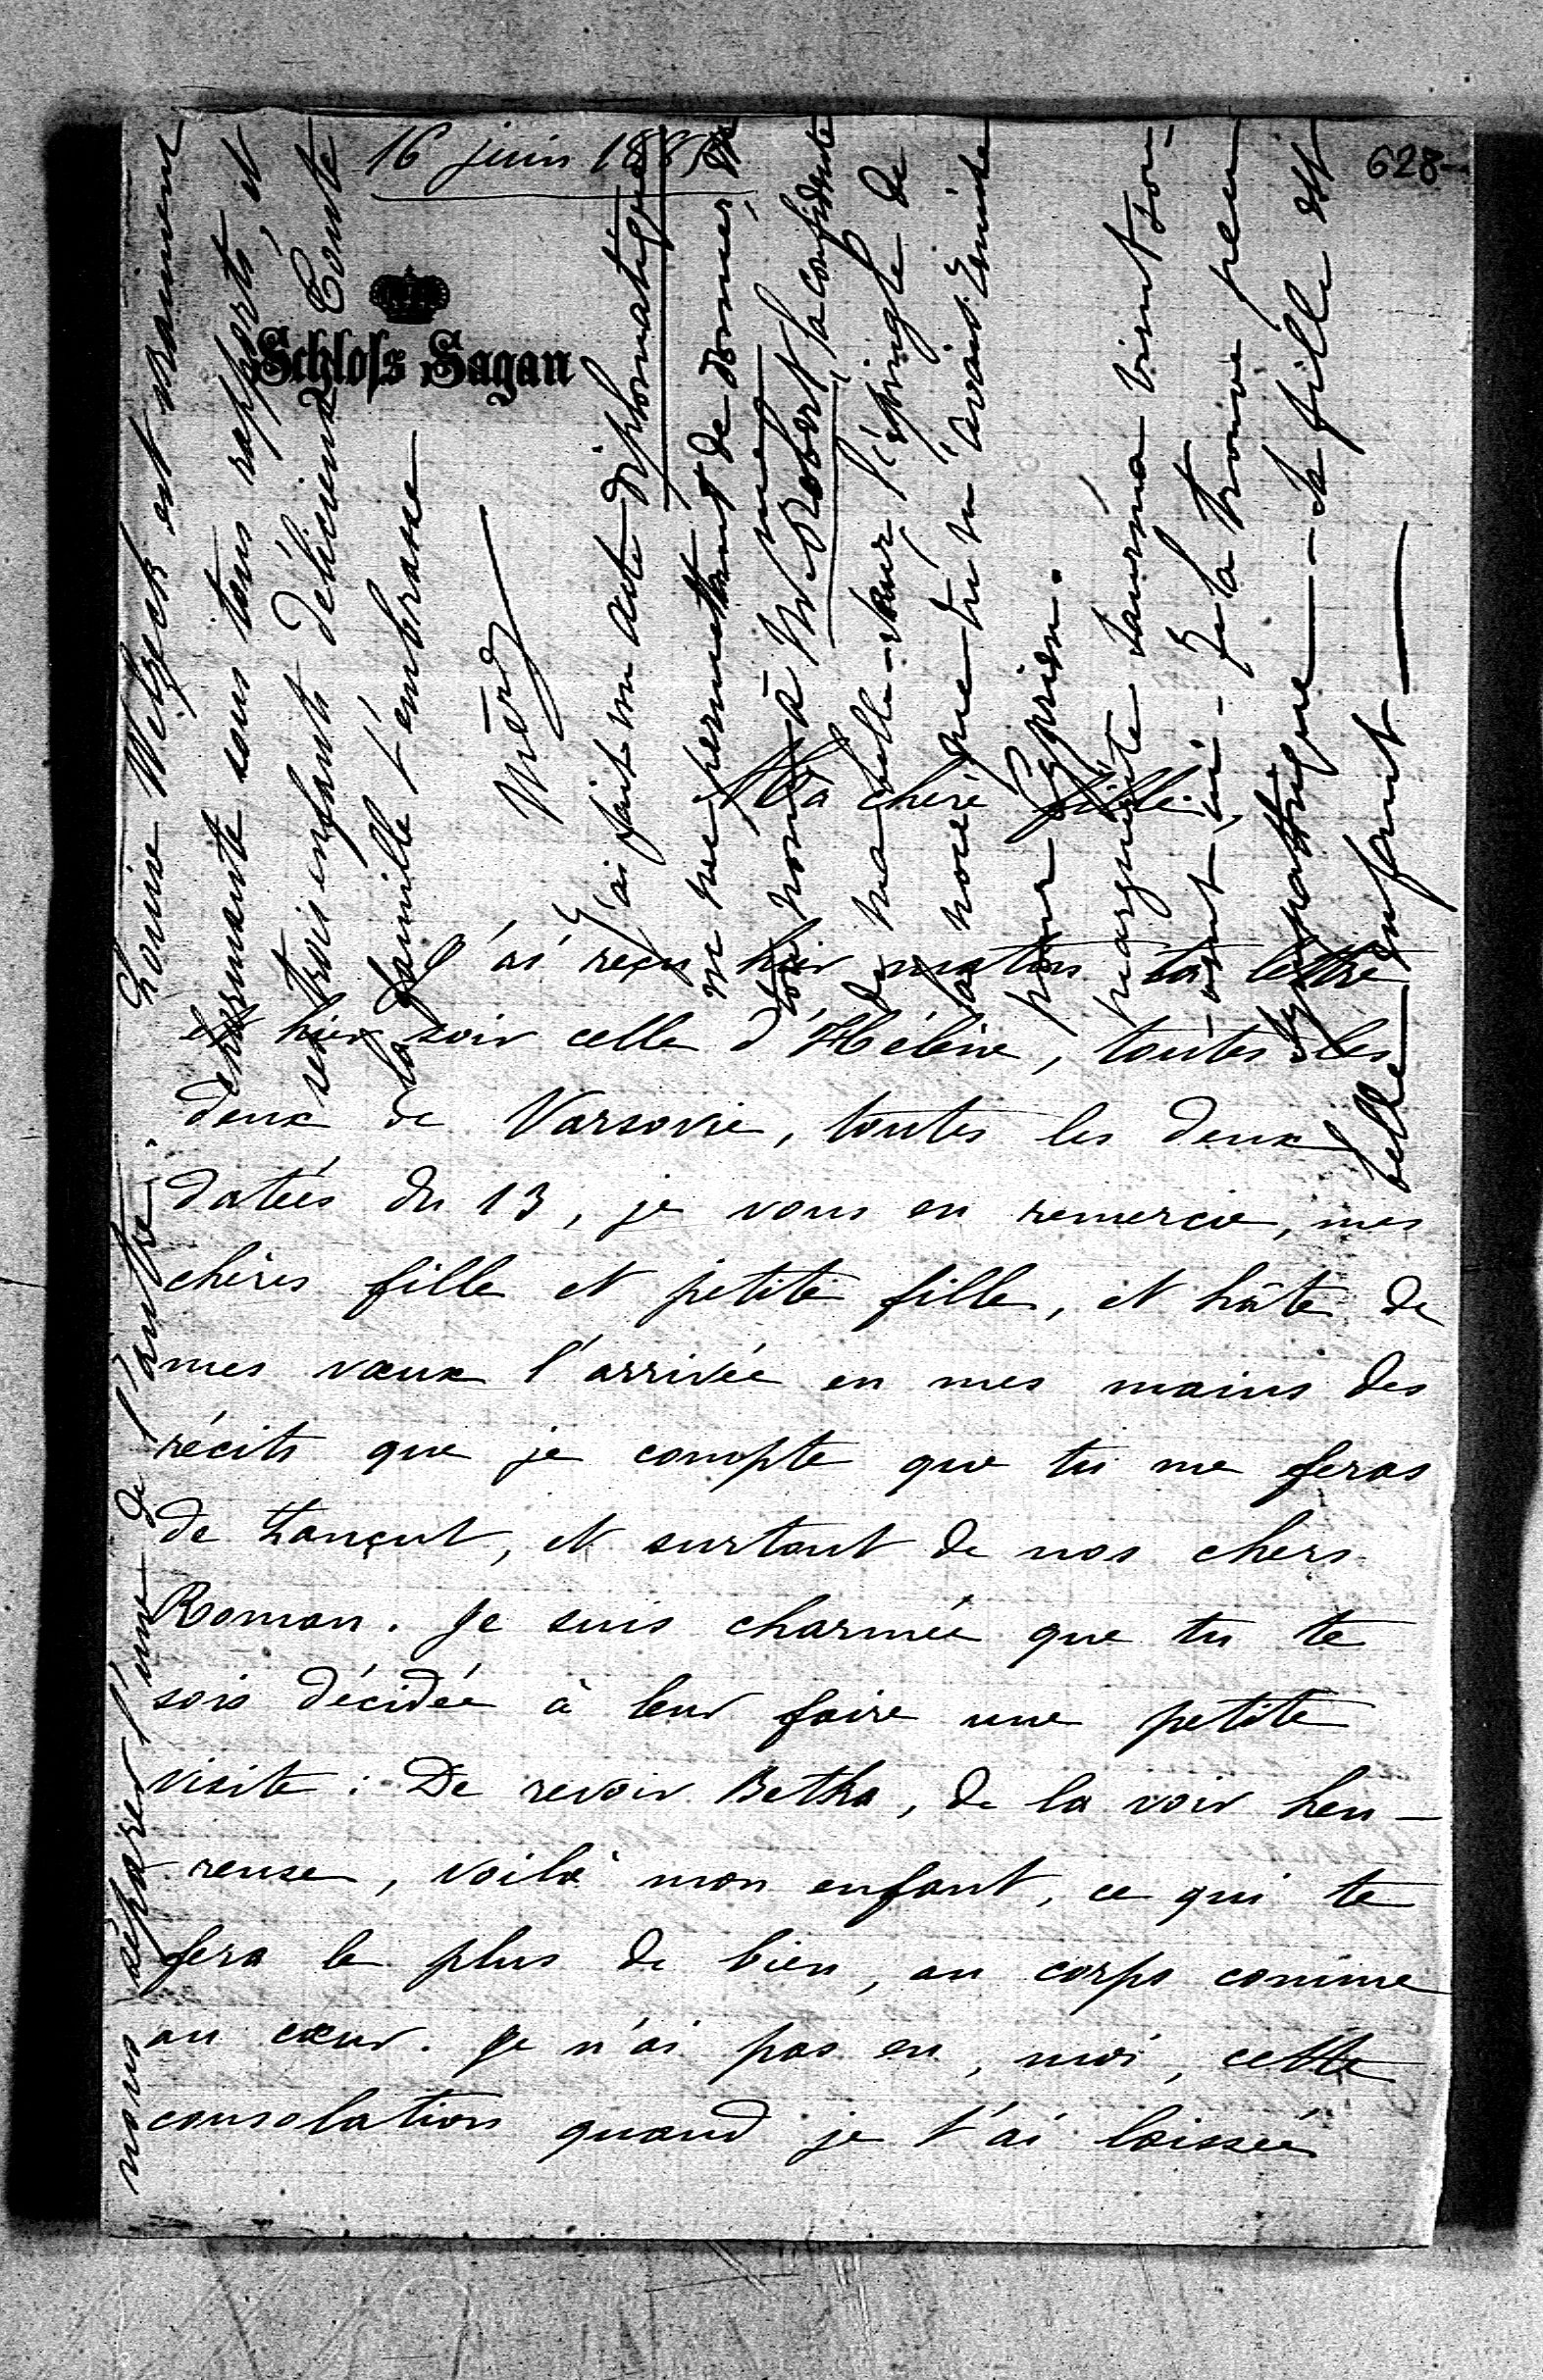 16 juin 188
628
Schloss Sagan
Ma chère fille,
J'ai reçu hier matin ta lettre
et hier soir celle d'Hélène, toutes les
deux de Varsovie, toutes les deux
datées du 13, je vous en remercie, mes
chères fille et petite fille, et hâte de
mes vœux l'arrivée en mes mains des
récits que je compte que tu me feras
de Lançut, et surtout de nos chers
Roman. Je suis charmée que tu te
sois décidée à leur faire une petite
visite : De revoir Betka, de la voir heu-
reuse, voilà mon enfant, ce qui te
fera le plus de bien, au corps comme
au cœur. Je n'ai pas eu, moi, cette
consolation quand je t'ai laissée
nous séparer l'une de l'autre.
Louise Welzeck est vraiment
charmante sous tous rapports, et
ses trois enfants délicieux. Toute
la famille t'embrasse
J'ai fait un acte diplomatique
me permettant de donner
à Robert, la confidente
de ma belle-sœur, l'épingle de
la noce que tu avais
pour Cyprien.
Marguerite vient sou-
-vent ici. Je la trouve peu
sympathique — Sa fille est
belle enfant